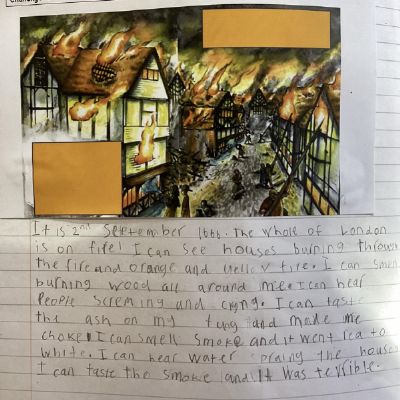 It is 2nd September 1666. The whole of London
is on fire! I can see houses burning through
the fire and orange and yellow fire. I can smell
burning wood all around me. I can hear
People screming and crying. I can tast
the ash on my tung and made me
choke. I can smell smoke and it went red to
white. I can hear water spraing the houses
I can taste the smoke and it was terrible.